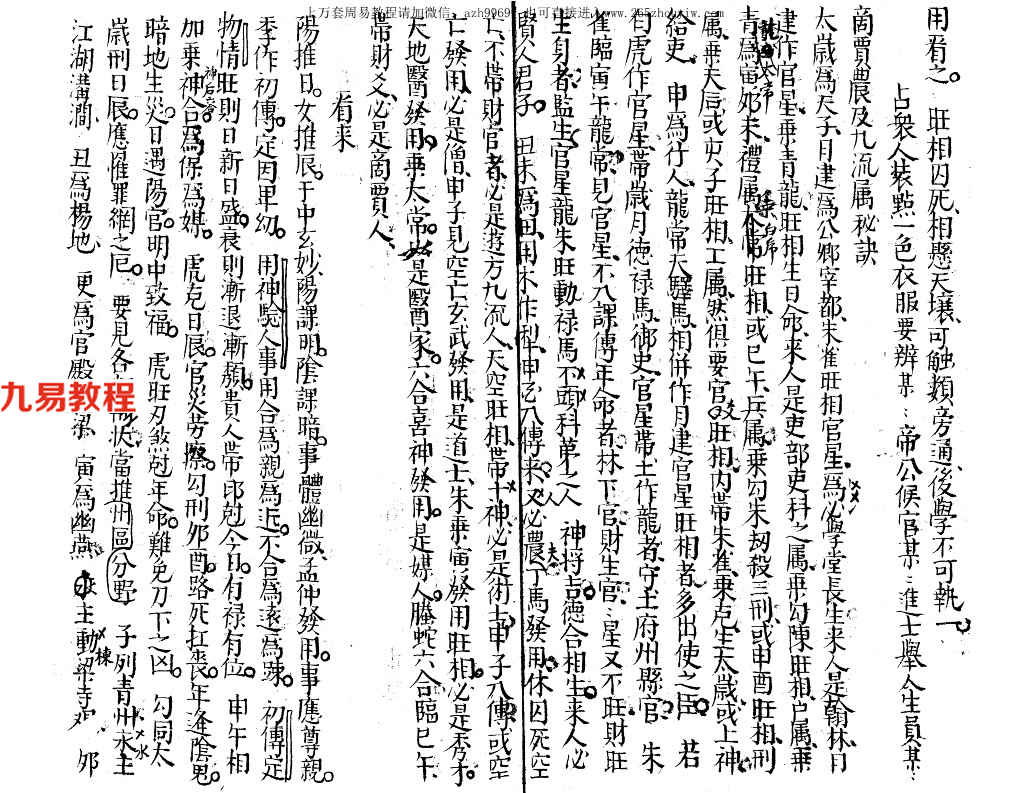 上万套周易教程请加微信
也可直接进入
九易教程
用看之。旺相囚死、相懸天壤、可触類旁通後學不可執一
占衆人裝點一色衣服要辨某、帝公侯官某、進士舉人生員某、
商賈農及九流属秘訣
太歲為天子月建為公鄉宰都朱雀旺相官星為必學堂長生來人是翰林日
建作官星乘青龍、旺相生日命來人是吏部吏科之属乘勾陳旺相户属、乘
青為寅卯未禮属太常旺相或巳午兵属、乘勾朱刼殺三刑或申酉旺相刑
属、乘天后或亥子旺相工属、然俱要官旺相内帶朱雀乘克生太歲或上神
給吏、申為行人龍常天驛馬相併作月建官星旺相者多出使之臣 若
白虎作官星帶歲月德禄馬御史官星帶土作龍者守土府州縣官 朱
雀臨寅午龍常見官星不入課傳年命者林下官財生官、星又不旺財旺
生身者監生官星龍朱旺動禄馬不頭科第之人 神将吉德合相生來人必
賢人君子 丑未為田用木作犁申必入傳來又必農丁馬發用休囚死空
亡不帶財官者必是遊方九流人天空旺相帶十神必是術士申子入傳或空
亡發用必是僧申子見空亡玄武發用是道士朱乘寅發用旺相必是秀才
天地醫發用乘太常必是醫家六合喜神發用是媒人螣蛇六合臨巳午
帶財又必是商賈人
看来
陽推日女推辰于中玄妙陽課明陰課暗事體幽微孟仲發用事應尊親
季作初傳定因卑幼 用神驗人事用合為親為近不合為遠為踈 初傳定
物情旺則日新日盛衰則漸退漸頹貴人帶印尅今日有禄有位 申午相
加乘神合為保為媒 虎克日辰官災旁察勾刑邜酉路死扛喪年逢陰鬼
暗地生災日遇陽官明中致福 虎旺刃煞尅年命難免刀下之凶 勾同太
歲刑日辰應催罪網之厄 要見各 状當推州區分野 子列青州亥主
江湖溝澗 丑為楊地 更為官殿 梁 寅為幽燕 主動梁寺 邜